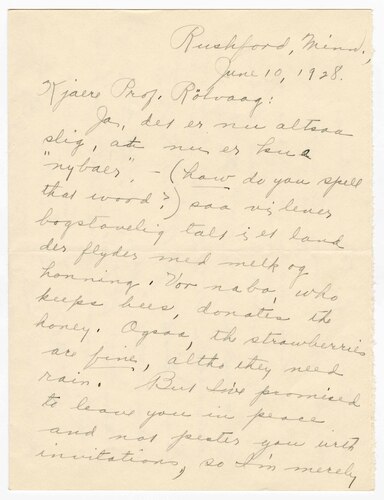 Rushford, Minn.,
June 10, 1928.
Kjaere Prof. Rölvaag:
Ja, det er nu altsaa
slig, at nu er kua
"nybaer", - (how do you spell
that word?) saa vi lever
bogstavelig talt i et land
der flyder med melk og
honning. Vor nabo, who
keeps bees, donates the
honey. Ogsaa, the strawberries
are fine, altho they need
rain. But I've promised
to leave you in peace
and not pester you with
invitations, so I'm merely